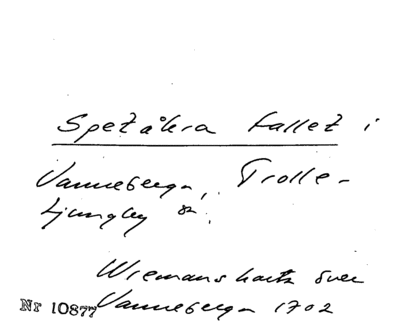 Spetåkra fallet i
Vanneberga, Trolle-
Ljungby sn.
Wiemans karta över
Nr 10877 Vanneberga 1702